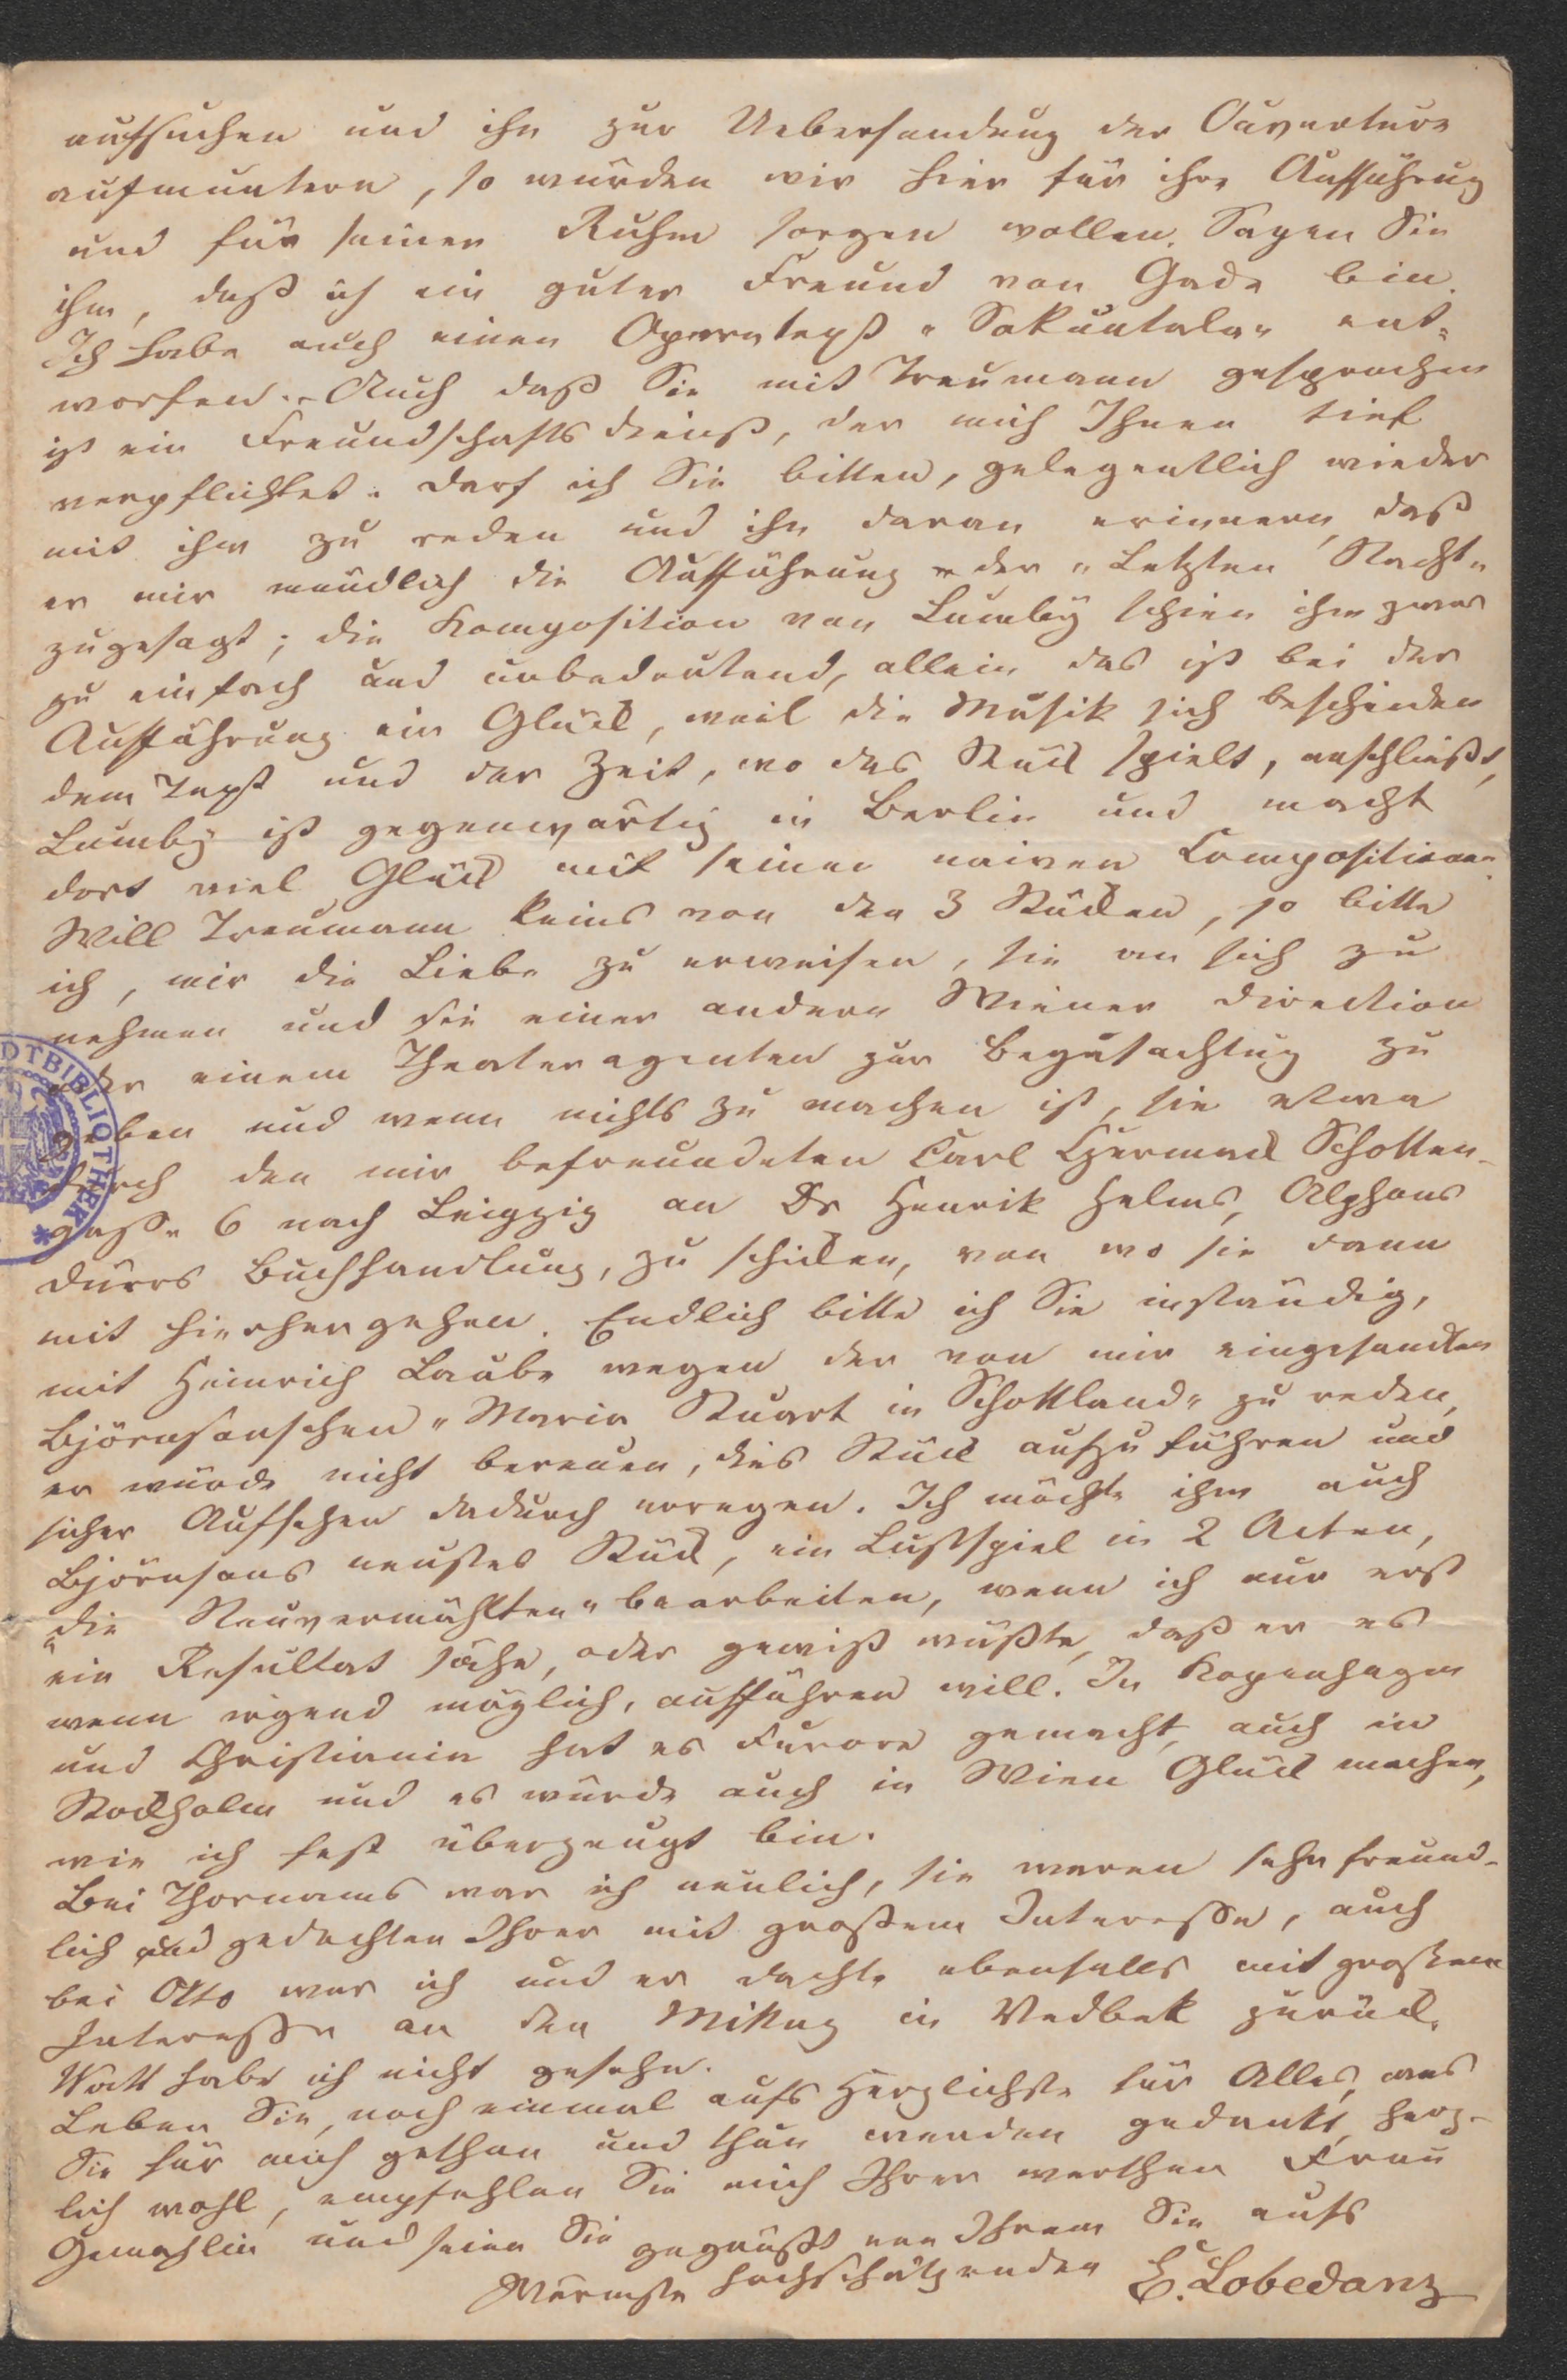 aufsuchen und ihn zur Uebersendung der Ouverture
aufmuntern, so würden wir hier für ihre Aufführung
und für seinen Ruhm sorgen wollen. Sagen Sie
ihm, daß ich ein guter Freund von Gade bin.
Ich habe auch einen Operntext "Sakuntala" ent-
worfen. Auch daß Sie mit Treumann gesprochen
ist ein Freundschaftsdienst, der mich Ihnen tief
verpflichtet. Darf ich Sie bitten, gelegentlich wieder
mit ihm zu reden und ihn daran erinnern, daß
er mir mündlich die Aufführung der "Letzten Nacht"
zugesagt; die Komposition von Lumby schien ihm zwar
zu einfach und unbedeutend, allein das ist bei der
Aufführung ein Glück, weil die Musik sich bescheiden
dem Text und der Zeit, wo das Stück spielt, anschließt,
Lumby ist gegenwärtig in Berlin und macht
dort viel Glück mit seinen naiven Compositionen.
Will Treumann keins von den 3 Stücken, so bitte
ich, mir die Liebe zu erweisen, sie an sich zu
nehmen und sie einer andern Wiener Direction
oder einem Theateragenten zur Begutachtug zu
geben und wenn nichts zu machen ist, sie etwa
durch den mir befreundeten Carl Czermack Schotten-
gasse 6 nach Leipzig an Dr Henrik Helms, Alphons
Dürrs Buchhandlung, zu schicken, von wo sie dann
mit hierher gehen. Endlich bitte ich Sie inständig,
mit Heinrich Laube wegen der von mir eingesandten
Björnsonschen "Maria Stuart in Schottland" zu reden,
er würde nicht bereuen, dies Stück aufzuführen und
sicher Aufsehen dadurch erregen. Ich möchte ihm auch
Björnsons neustes Stück, ein Lustspiel in 2 Acten,
"die Neuvermählten" bearbeiten, wenn ich nur erst
ein Resultat sähe, oder gewiß wüßte, daß er es
wenn irgend möglich, aufführen will. In Kopenhagen
und Christiania hat es Furore gemacht, auch in
Stockholm und es würde auch in Wien Glück machen,
wie ich fest überzeugt bin.
Bei Thornams war ich neulich, sie waren sehr freund-
lich und gedachten Ihrer mit großem Interesse, auch
bei Otto war ich und er dachte ebenfalls mit großem
Interesse an den Mittag in Vedbek zurück.
Watt habe ich nicht gesehn.
Leben Sie, noch einmal aufs Herzlichste für Alles, was
Sie für mich gethan und thun werden gedankt, herz-
lich wohl, empfehlen Sie mich Ihrer werthen Frau
Gemahlin und seien Sie gegrüßt von Ihrem Sie aufs
Wärmste hochschätzenden E. Lobedanz
DTBIBLIOTHEK *